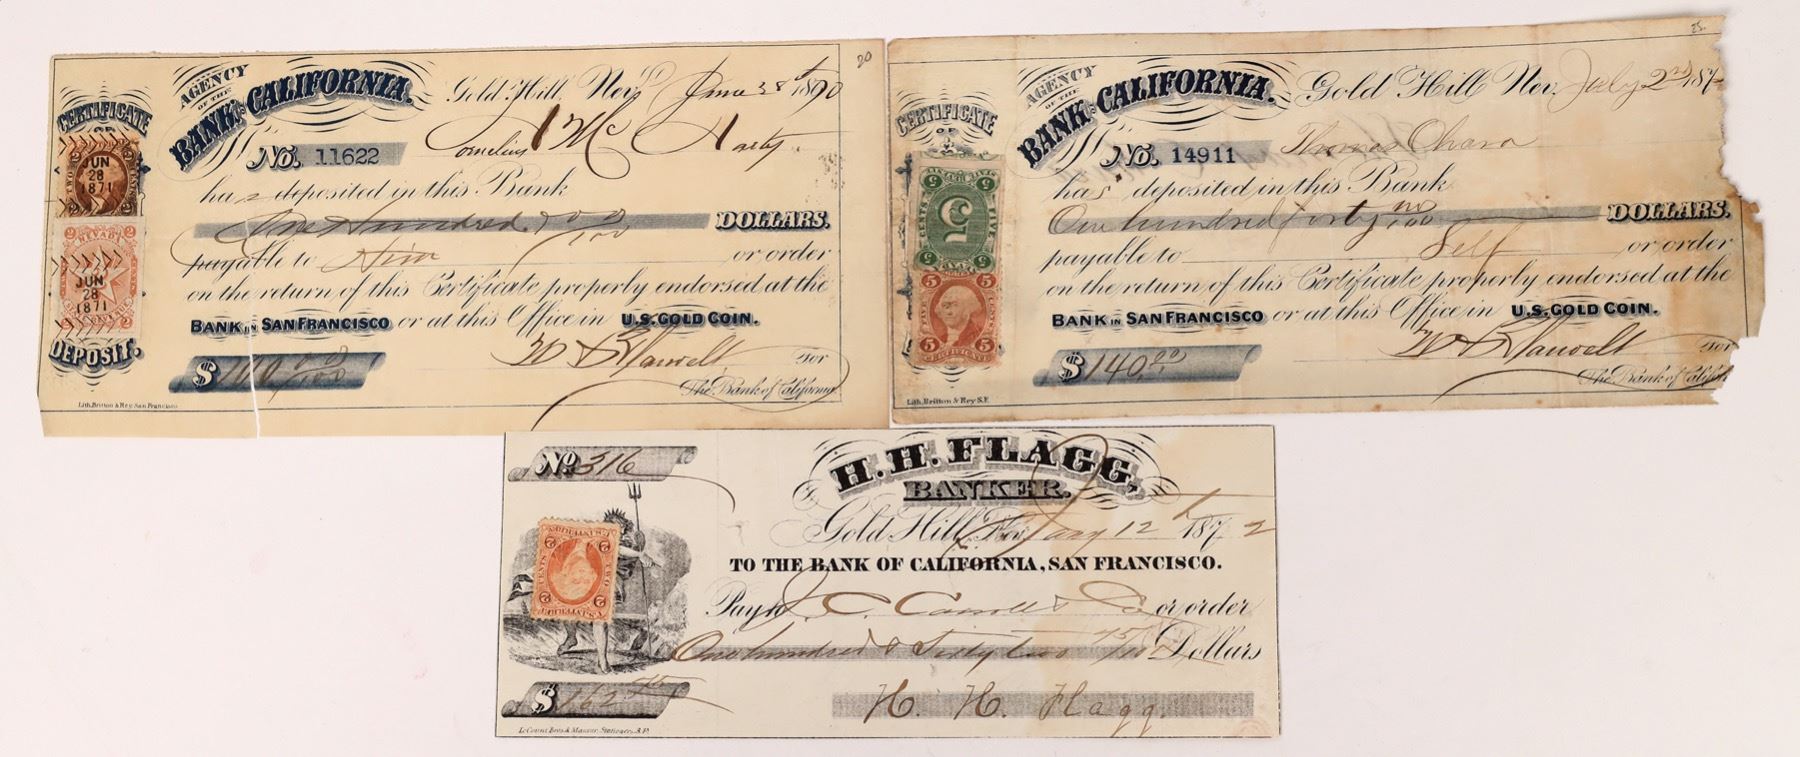 20
AGENCY
OF THE
BANK OF CALIFORNIA.
Gold Hill, Nev. June 28th 1870
CERTIFICATE
OF
DEPOSIT.
JUN
28
1871
NEVADA
JUN
28
1871
No. 11622
Cornelius McHarty
has deposited in this Bank
One Hundred 00/100 DOLLARS.
payable to Him or order
on the return of this Certificate properly endorsed at the
BANK IN SAN FRANCISCO or at this Office in U.S. GOLD COIN.
$ 100 00/100
for
The Bank of California.
Lith. Britton & Rey San Francisco
25
AGENCY
OF THE
BANK OF CALIFORNIA.
Gold Hill Nev. July 2nd 187
CERTIFICATE
OF
5
FIVE
CENTS
5
CERTIFICATE
No. 14911
Thomas Ohara
has deposited in this Bank
One hundred forty no/100 DOLLARS.
payable to Self or order
on the return of this Certificate properly endorsed at the
BANK IN SAN FRANCISCO or at this Office in U.S. GOLD COIN.
$ 140.00
for
The Bank of Califor
Lith. Britton & Rey S.F.
No 316
H. H. FLAGG,
BANKER.
Gold Hill, Nev. Jany 12th 1872
TO THE BANK OF CALIFORNIA, SAN FRANCISCO.
Pay to J. C. Carroll & Co or order
One hundred & Sixty two 75/100 Dollars
$ 162 75
H. H. Flagg.
Le Count Bros & Mansur, Stationers, S.F.